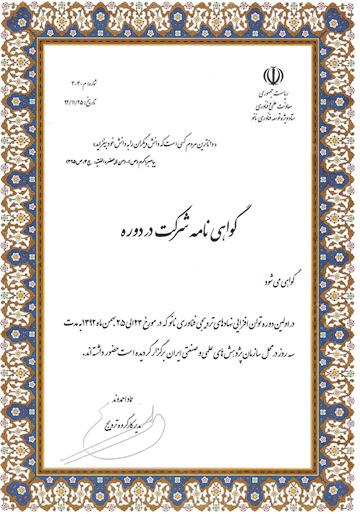 ریاست جمهوری
معاونت علمی و فناوری
ستاد ویژه توسعه فناوری نانو
شماره:
تاریخ: ۹۲/۱۱/۲۵
«داناترین مردم کسی است که دانش دیگران را به دانش خود بیفزاید»
پیامبر اکرم (ص) - (من لایحضره الفقیه، ج۴، ص ۳۹۵)
گواهی نامه شرکت در دوره
گواهی می شود
در اولین دوره توان افزایی نهادهای ترویجی فناوری نانو که در مورخ ۲۳ الی ۲۵ بهمن ماه ۱۳۹۲ به مدت
سه روز در محل سازمان پژوهش های علمی و صنعتی ایران برگزار گردیده است حضور داشته اند.
عماد احمدوند
مدیر کارگروه ترویج